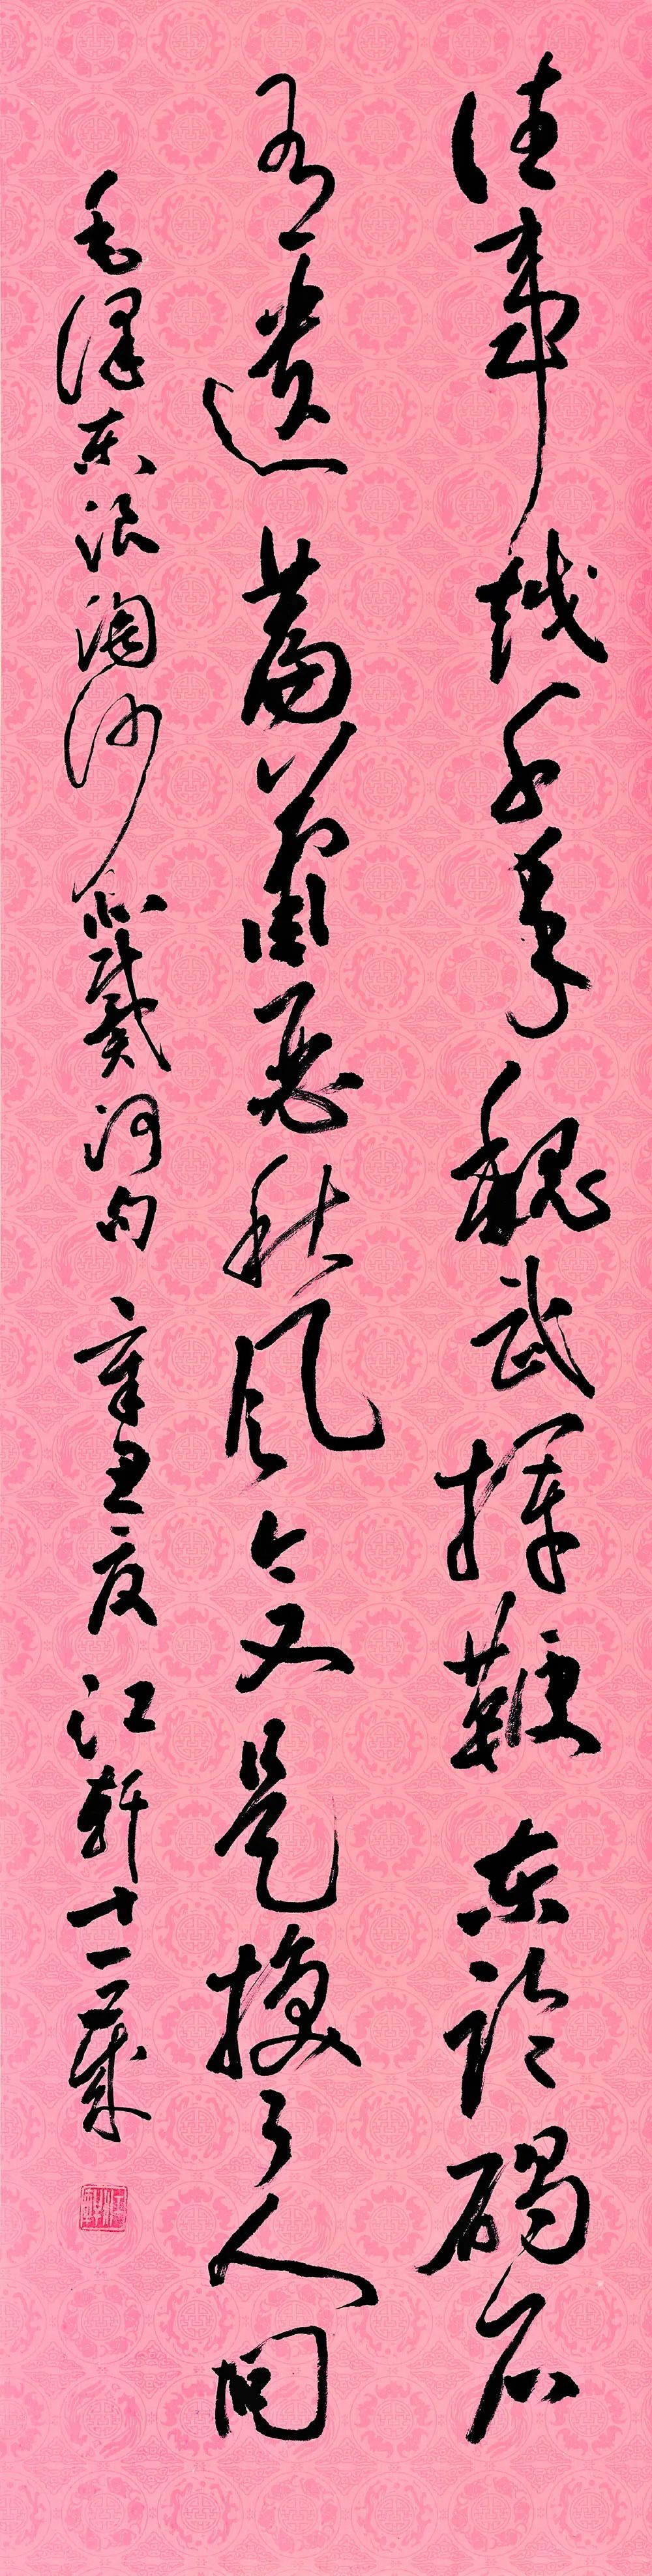 往事越千年魏武挥鞭东临碣石
有遗篇萧瑟秋风今又是换了人间
毛泽东浪淘沙北戴河句 辛丑夏 江轩十一岁